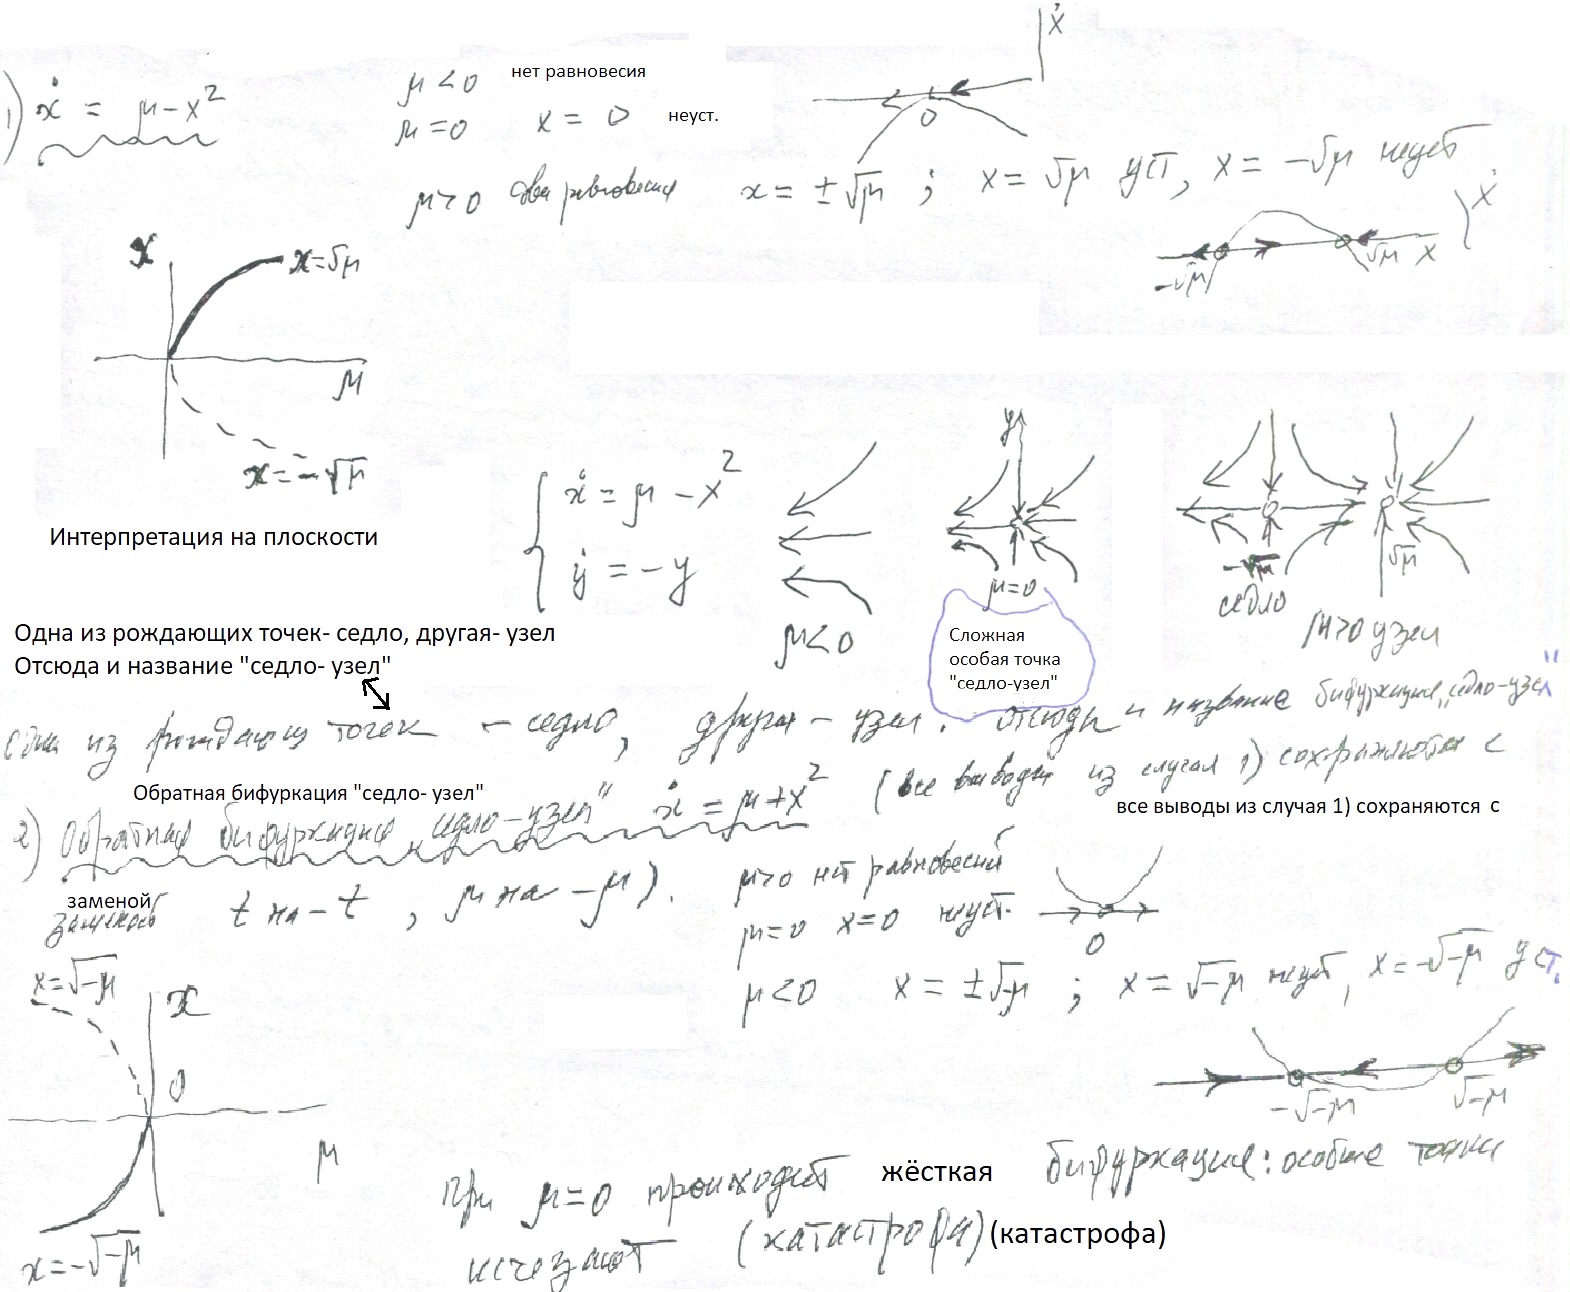 1) ẋ = μ - x²
μ < 0 нет равновесия
μ = 0 x = 0 неуст.
ẋ
0
μ > 0 два равновесия x = ±√μ ; x = √μ уст, x = -√μ неуст
ẋ
-√μ √μ x
x
x = √μ
μ
x = -√μ
Интерпретация на плоскости
{ ẋ = μ - x²
ẏ = -y
μ < 0
y
μ = 0
Сложная
особая точка
"седло-узел"
-√μ √μ
седло
μ > 0 узел
Одна из рождающих точек- седло, другая- узел
Отсюда и название "седло- узел"
одна из рождающих точек - седло, другая - узел. отсюда и название бифуркация „седло-узел"
Обратная бифуркация "седло- узел"
2) Обратная бифуркация „седло-узел" ẋ = μ + x² (все выводы из случая 1) сохраняются с
все выводы из случая 1) сохраняются с
заменой
заменой t на -t , μ на -μ ).
μ > 0 нет равновесий
μ = 0 x = 0 неуст.
0
μ < 0 x = ±√-μ ; x = √-μ неуст, x = -√-μ уст.
x = √-μ
x
0
μ
x = -√-μ
-√-μ √-μ
При μ = 0 происходит жёсткая бифуркация: особые точки
исчезают (катастрофа) (катастрофа)